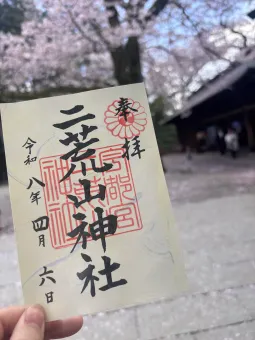 奉拝
二荒山神社
令和八年四月六日